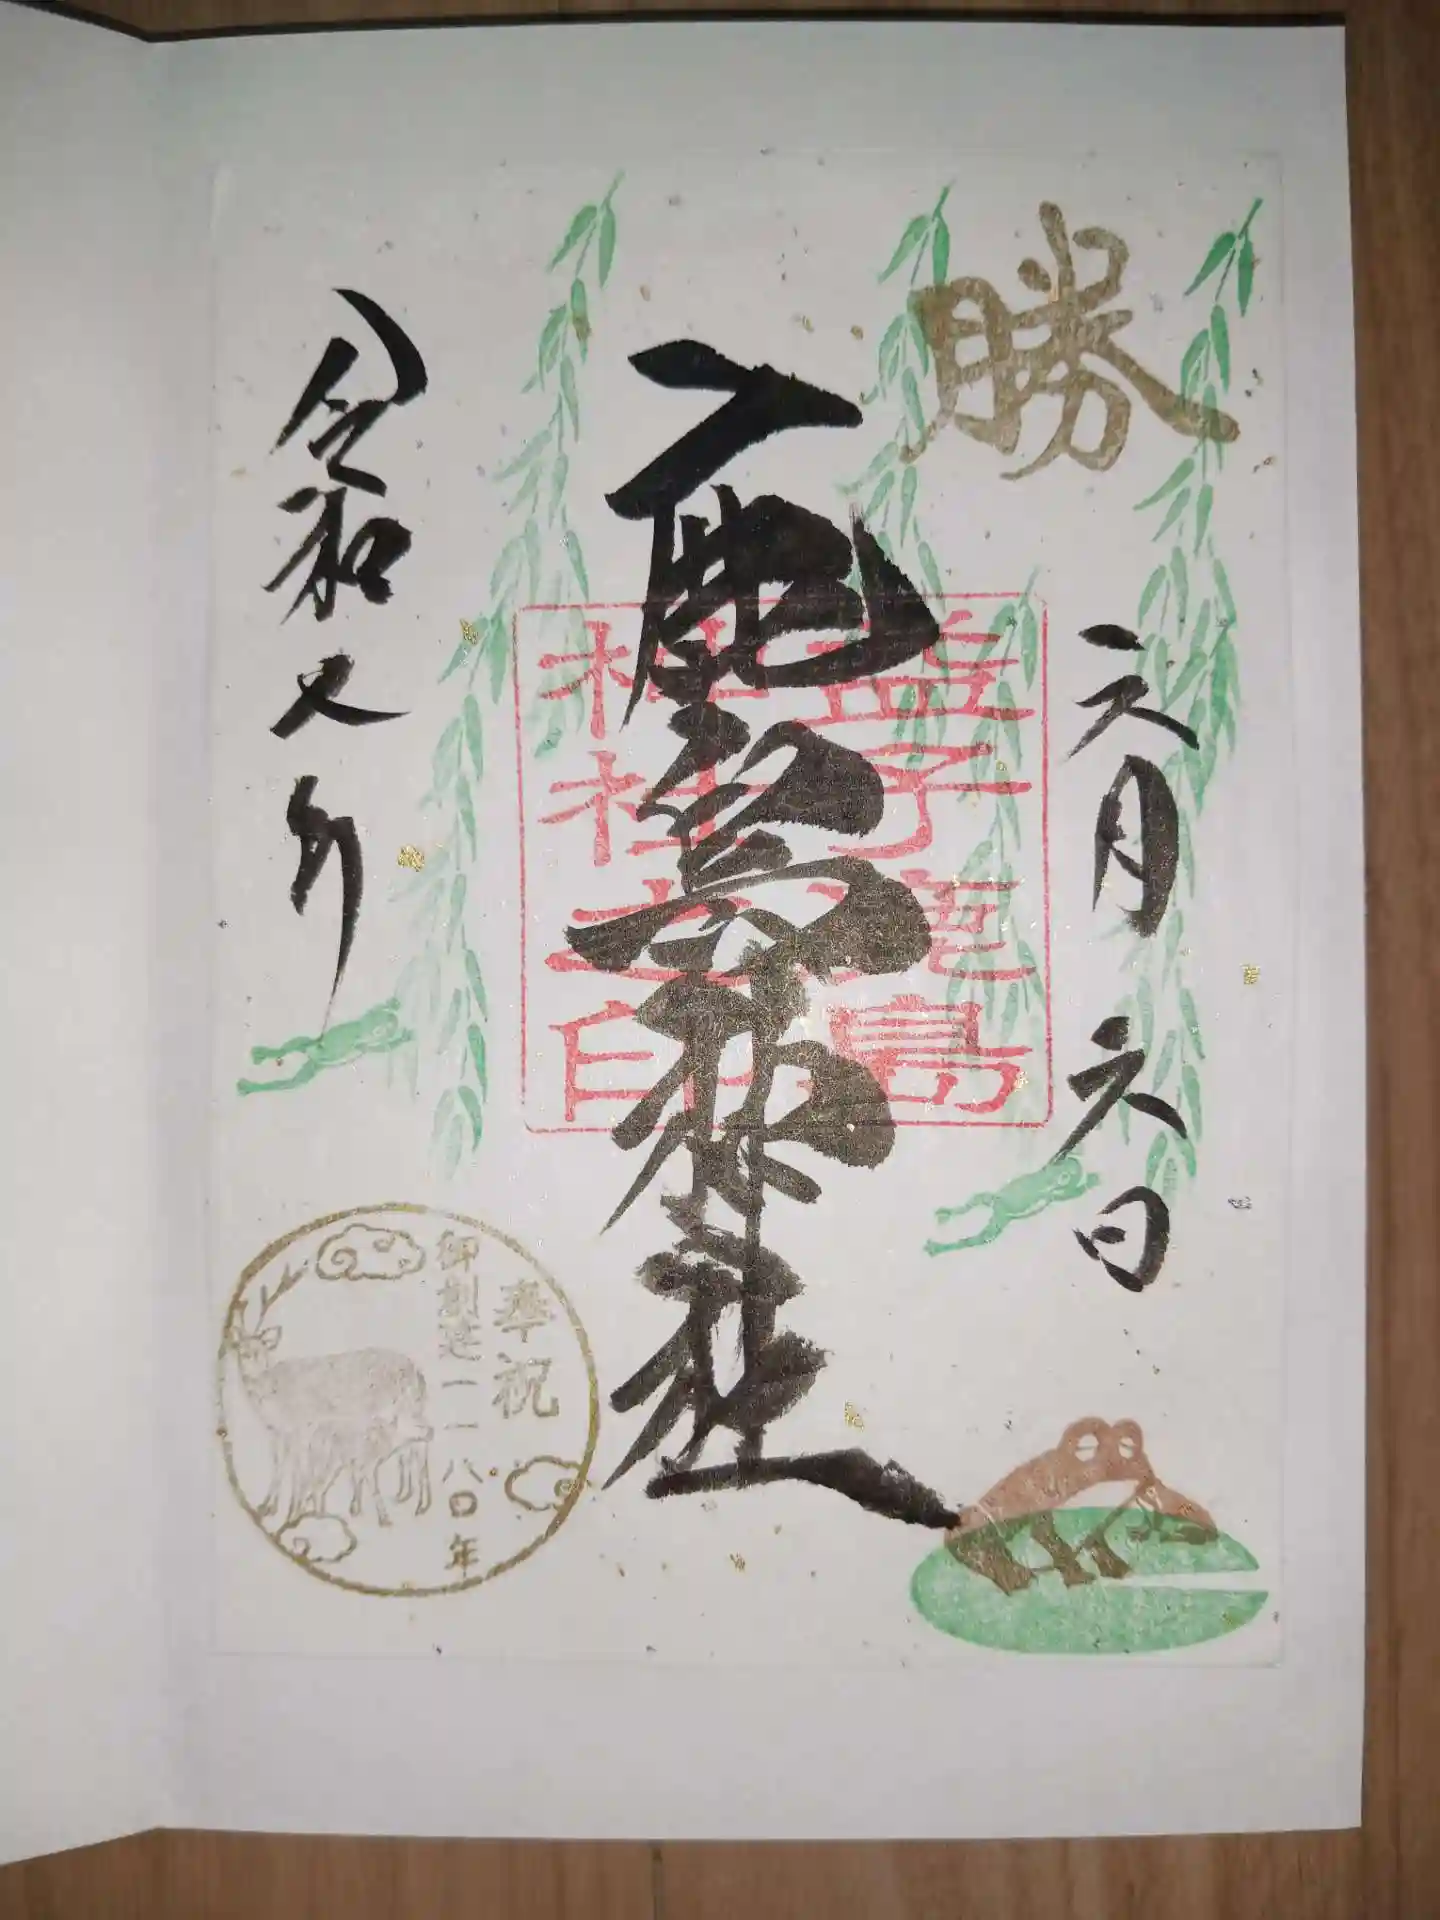 勝
六月六日
鹿島神社
益子鹿島
神社之印
令和 年
奉祝
御創建一一八〇年